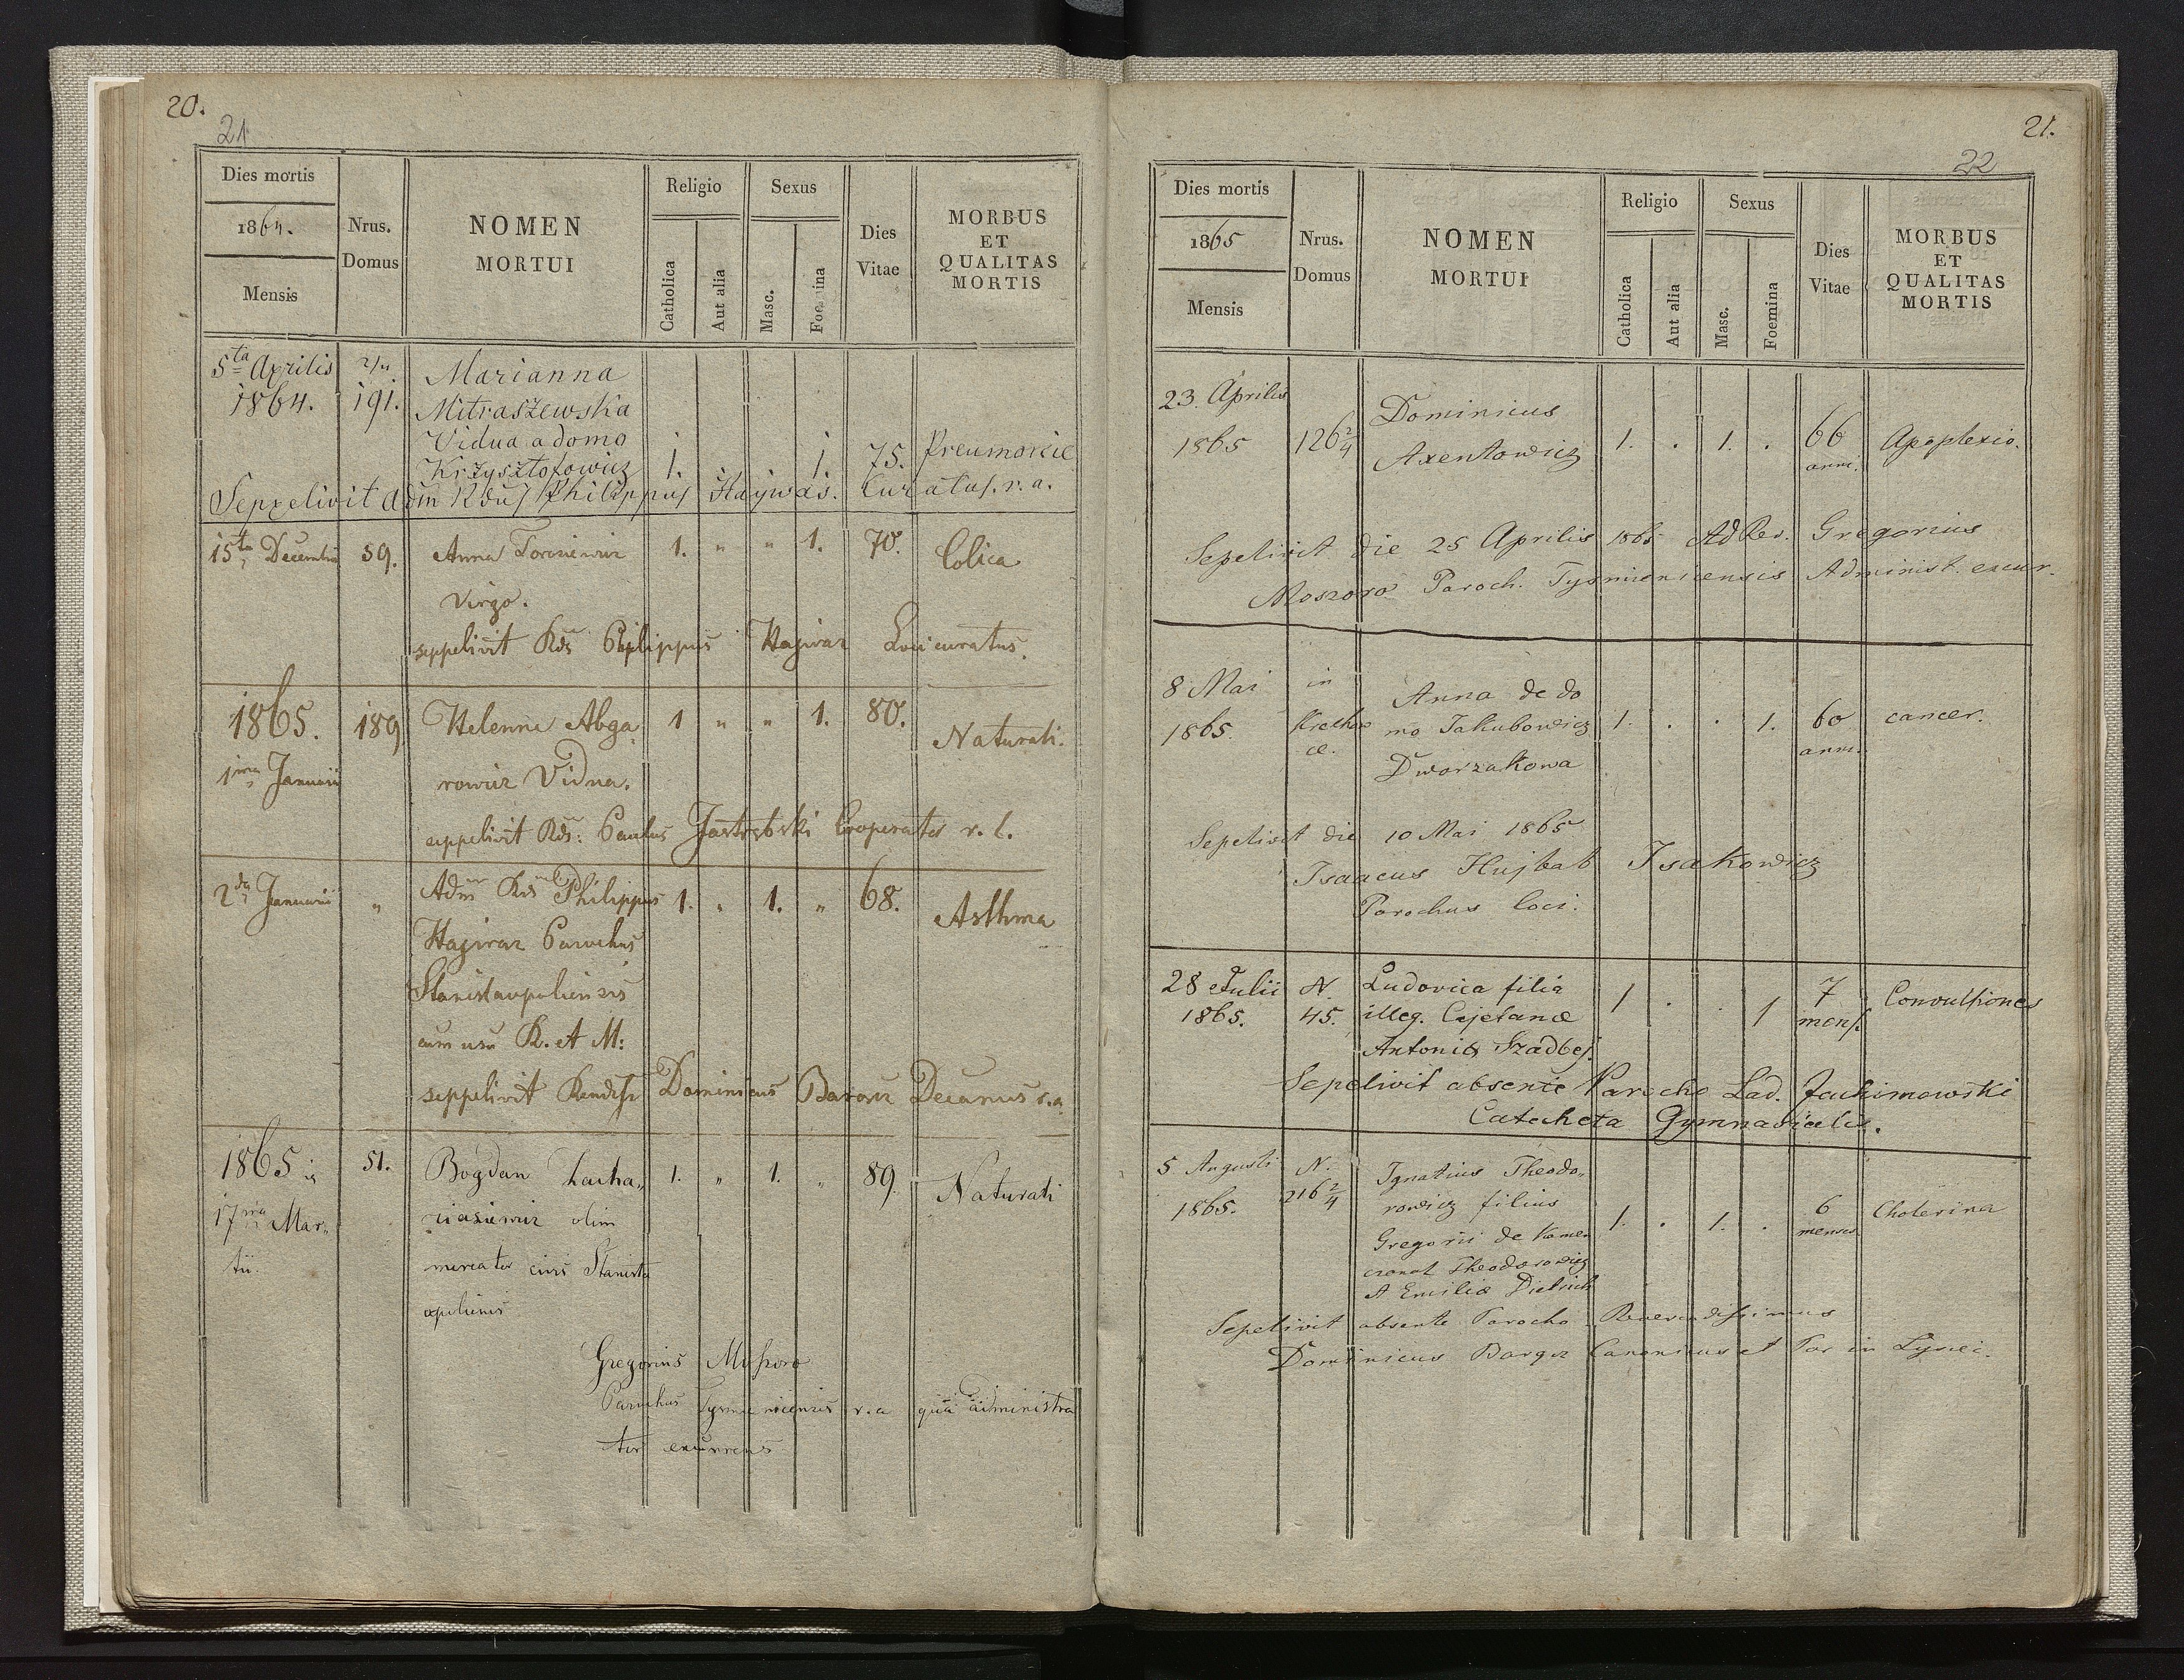 20.
21
Dies mortis
1864.
Mensis
Nrus.
Domus
NOMEN
MORTUI
Religio
Catholica
Aut alia
Sexus
Masc.
Foemina
Dies
Vitae
MORBUS
ET
QUALITAS
MORTIS
5ta Aprilis 2/4 Marianna
1864. 191. Mitraszewska
Vidua a domo
Krzysztofowicz 1. 1. 75. Pneumonie
Sepelivit Adm Rdus Philippus Haywas. Curatus. r. a.
15ta Decembris 59. Anna Torosiewicz 1. " " 1. 70. Colica
Virgo.
seppelivit Rds Philippus Hajwas Loci curatus.
1865. 189 Helenna Abga 1 " " 1. 80. Naturali.
1ma Januarii rowicz Vidua.
seppelivit Rds: Paulus Jastrębski Cooperator r. l.
2da Januarii " Adm Rds Philippus 1. " 1. " 68. Asthma
Hajwas Parochus
Stanislaupoliensis
cum usu R. et M:
seppelivit Rendss Dominicus Barącz Decanus r. a.
1865 51. Bogdan Zacha„ 1. " 1. " 89. Naturali
17ma Mar„ riasiewicz olim
tii. mercator civis Stanisla
opoliensis
Gregorius Moszoro
Parochus Tysmenicensis r. a qua administra
tor excurrens
21.
22
Dies mortis
1865
Mensis
Nrus.
Domus
NOMEN
MORTUI
Religio
Catholica
Aut alia
Sexus
Masc.
Foemina
Dies
Vitae
MORBUS
ET
QUALITAS
MORTIS
23. Aprilis Dominicus
1865 126 2/4 Axentowicz 1. . 1. . 66 Apoplexio.
anni.
Sepelivit die 25 Aprilis 1865 Ad Rev. Gregorius
Moszoro Paroch. Tysmienicensis Administ. excur.
8 Mai in Anna de do
1865. mo Jakubowicz 1. . . 1. 60 cancer.
ce. Dworzakowa anni.
Sepelivit die 10 Mai 1865
Isaacus Hujbab Isakowicz
Parochus loci.
28 Julii N. Ludovica filia 1 . . 1 7 Convulsiones
1865. 45. illeg. Cajetanæ mens.
Antoniæ
Sepelivit absente Parocho Lad. Jachimowski
Catecheta Gymnasialis.
5 Augusti N. Ignatius Theodo„
1865. 216 2/4 rowicz filius 1. . 1. . 6 Cholerina
Gregorii de Kamer menses
cronat Theodorowicz
et Emiliæ Dietrich
Sepelivit absente Parocho Reverendissimus
Dominicus Barącz Canonicus et Par in Lysiec.